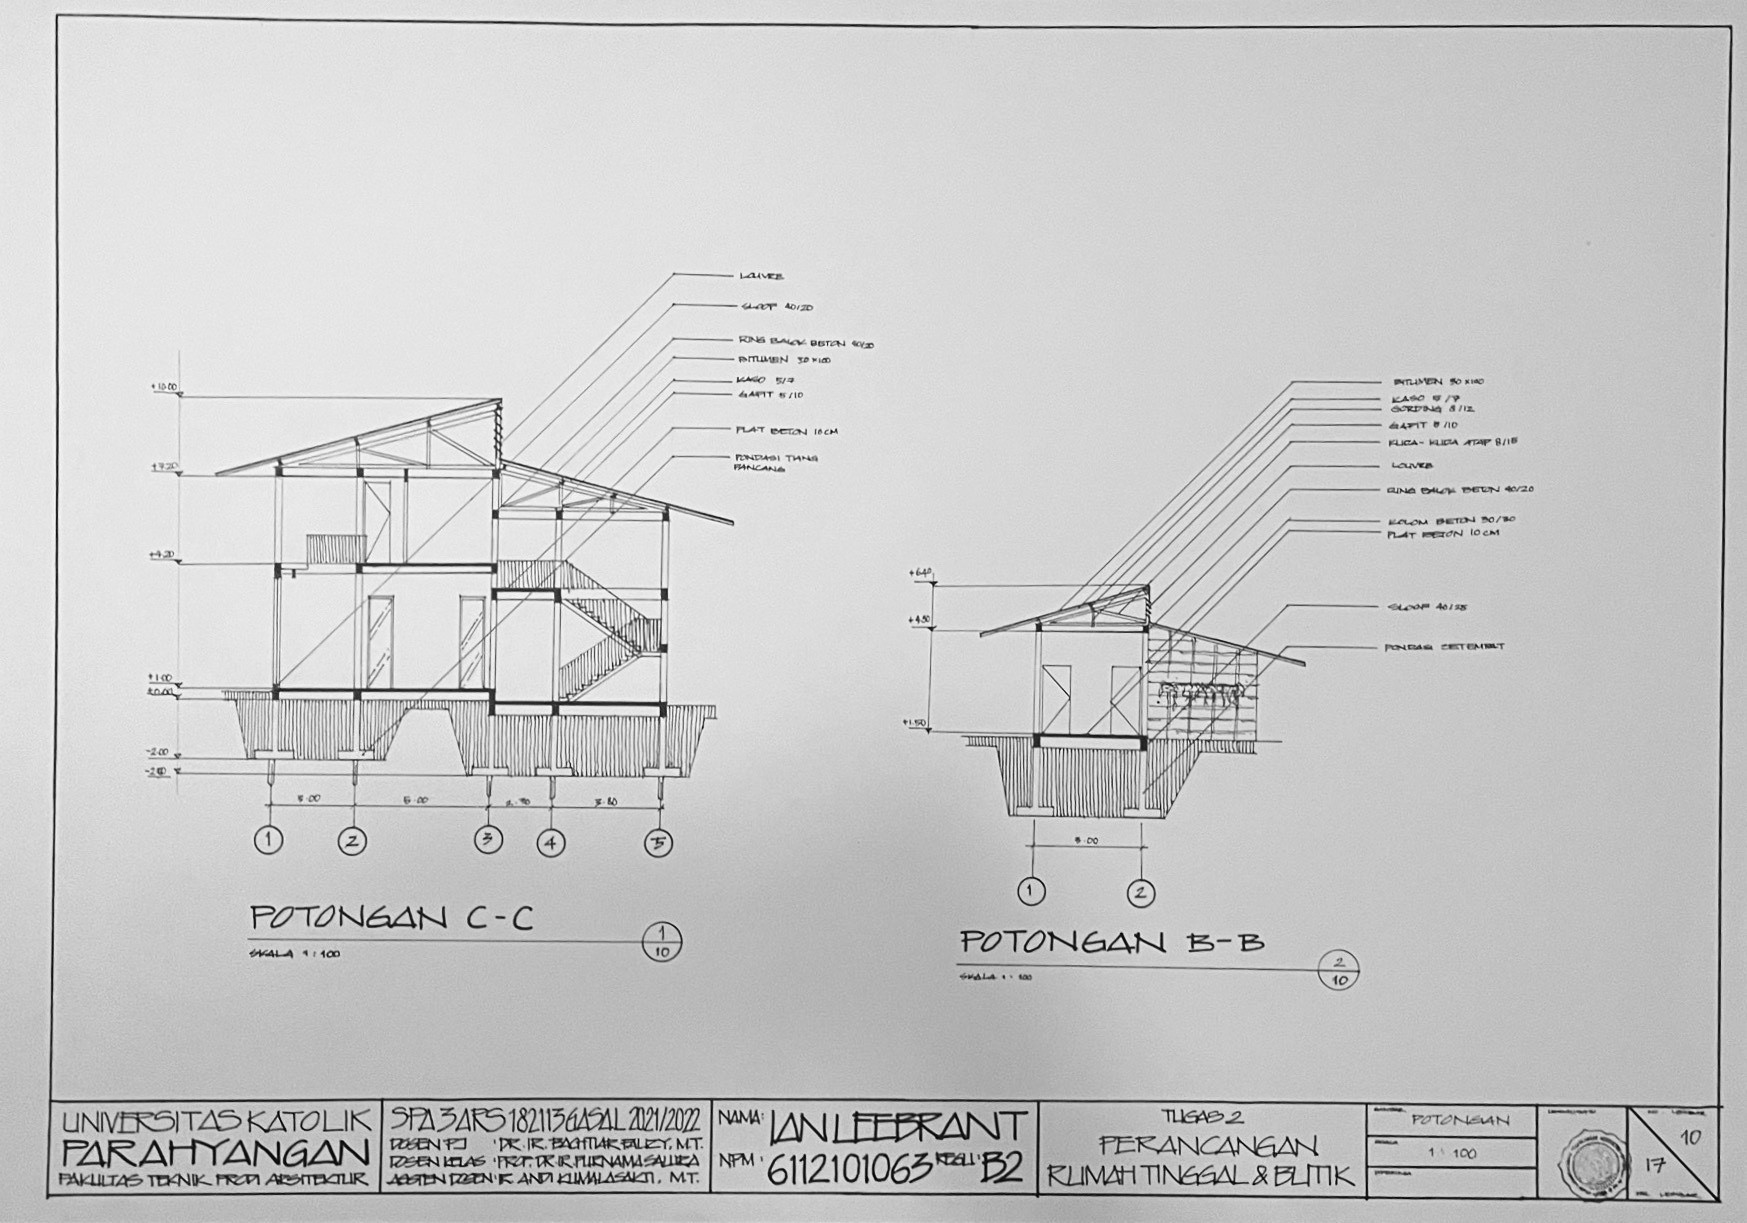 LOUVRE
SLOOF 40/20
RING BALOK BETON 40/20
BITUMEN 30×100
KASO 5/7
GAPIT 5/10
PLAT BETON 10CM
PONDASI TIANG
PANCANG
+10.00
+7.20
+4.20
+1.00
±0.00
-2.00
3.00
5.00
1
2
3
4
5
POTONGAN C-C
SKALA 1:100
1
10
BITUMEN 30×100
KASO 5/7
GORDING 8/12
GAPIT 5/10
KUDA-KUDA ATAP 8/15
LOUVRE
RING BALOK BETON 40/20
KOLOM BETON 30/30
PLAT BETON 10CM
SLOOF 40/25
PONDASI SETEMPAT
+6.40
+4.50
+1.50
1
2
POTONGAN B-B
SKALA 1:100
2
10
UNIVERSITAS KATOLIK
PARAHYANGAN
FAKULTAS TEKNIK PRODI ARSITEKTUR
SPA 3 ARS 182113 GASAL 2021/2022
DOSEN PJ : DR. IR. BACHTIAR FAUZY, M.T.
DOSEN KELAS : PROF. DR. IR. PURNAMA SALURA
ASISTEN DOSEN : IR. ANDI KUMALASAKTI, M.T.
NAMA: IAN LEEBRANT
NPM: 6112101063 REGU: B2
TUGAS 2
PERANCANGAN
RUMAH TINGGAL & BUTIK
POTONGAN
1:100
10
17